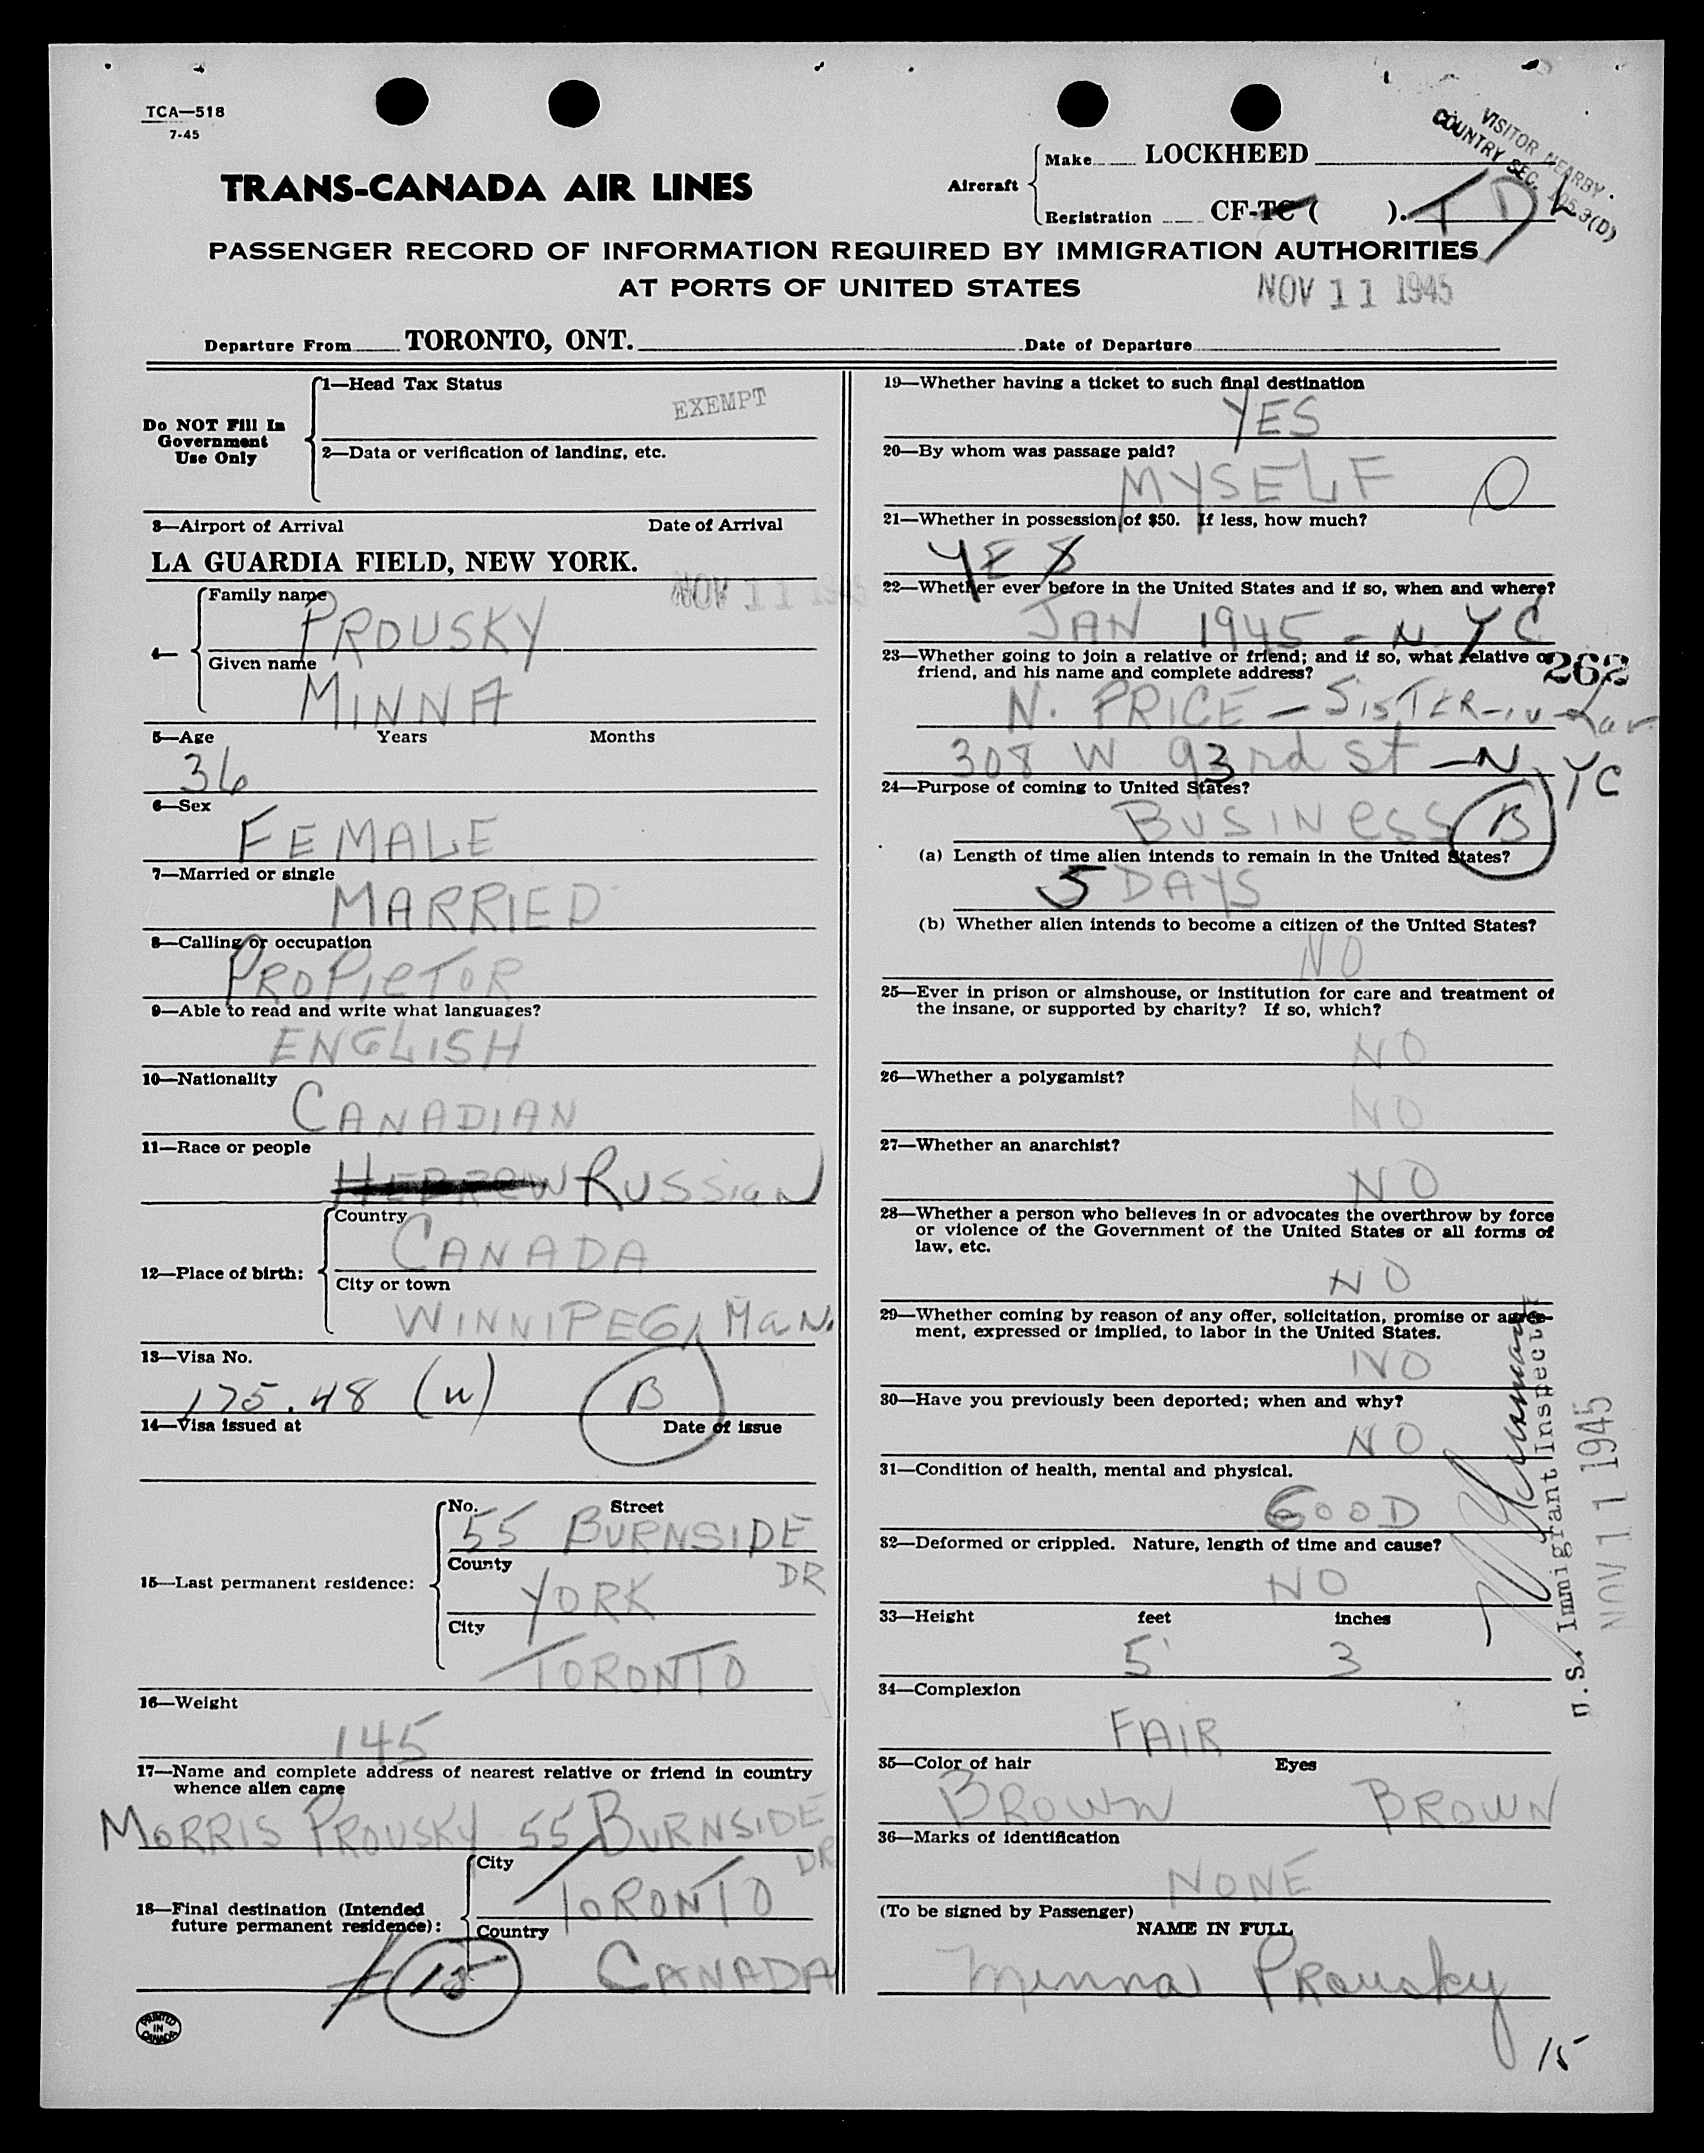 TCA—518
7-45
VISITOR NEARBY
COUNTRY SEC.
TRANS-CANADA AIR LINES
Aircraft
Make LOCKHEED
Registration CF-TC ( ).
PASSENGER RECORD OF INFORMATION REQUIRED BY IMMIGRATION AUTHORITIES
AT PORTS OF UNITED STATES
NOV 11 1945
Departure From TORONTO, ONT. Date of Departure
Do NOT Fill In
Government
Use Only
1—Head Tax Status
EXEMPT
2—Data or verification of landing, etc.
3—Airport of Arrival Date of Arrival
LA GUARDIA FIELD, NEW YORK.
NOV 11 1945
4—
Family name
PROUSKY
Given name
MINNA
5—Age Years Months
36
6—Sex
FEMALE
7—Married or single
MARRIED
8—Calling or occupation
PROPIETOR
9—Able to read and write what languages?
ENGLISH
10—Nationality
CANADIAN
11—Race or people
HEBREW RUSSIAN
12—Place of birth:
Country
CANADA
City or town
WINNIPEG, MAN.
13—Visa No.
175.48 (w) B
14—Visa issued at Date of issue
15—Last permanent residence:
No. Street
55 BURNSIDE
DR
County
YORK
City
TORONTO
16—Weight
145
17—Name and complete address of nearest relative or friend in country
whence alien came
MORRIS PROUSKY 55 BURNSIDE
DR
18—Final destination (Intended
future permanent residence):
City
TORONTO
Country
CANADA
15
PRINTED
IN
CANADA
19—Whether having a ticket to such final destination
YES
20—By whom was passage paid?
MYSELF
21—Whether in possession of $50. If less, how much?
YES
22—Whether ever before in the United States and if so, when and where?
JAN 1945 - N YC
23—Whether going to join a relative or friend; and if so, what relative or
friend, and his name and complete address?
262
N. PRICE — SISTER-in-Law
308 W 93rd St — N YC
24—Purpose of coming to United States?
BUSINESS B
(a) Length of time alien intends to remain in the United States?
5 DAYS
(b) Whether alien intends to become a citizen of the United States?
NO
25—Ever in prison or almshouse, or institution for care and treatment of
the insane, or supported by charity? If so, which?
NO
26—Whether a polygamist?
NO
27—Whether an anarchist?
NO
28—Whether a person who believes in or advocates the overthrow by force
or violence of the Government of the United States or all forms of
law, etc.
NO
29—Whether coming by reason of any offer, solicitation, promise or agree-
ment, expressed or implied, to labor in the United States.
NO
30—Have you previously been deported; when and why?
NO
31—Condition of health, mental and physical.
GOOD
32—Deformed or crippled. Nature, length of time and cause?
NO
33—Height feet inches
5' 3
34—Complexion
FAIR
35—Color of hair Eyes
BROWN BROWN
36—Marks of identification
NONE
(To be signed by Passenger)
NAME IN FULL
Minna Prousky
15
U.S. Immigrant Inspector
NOV 11 1945